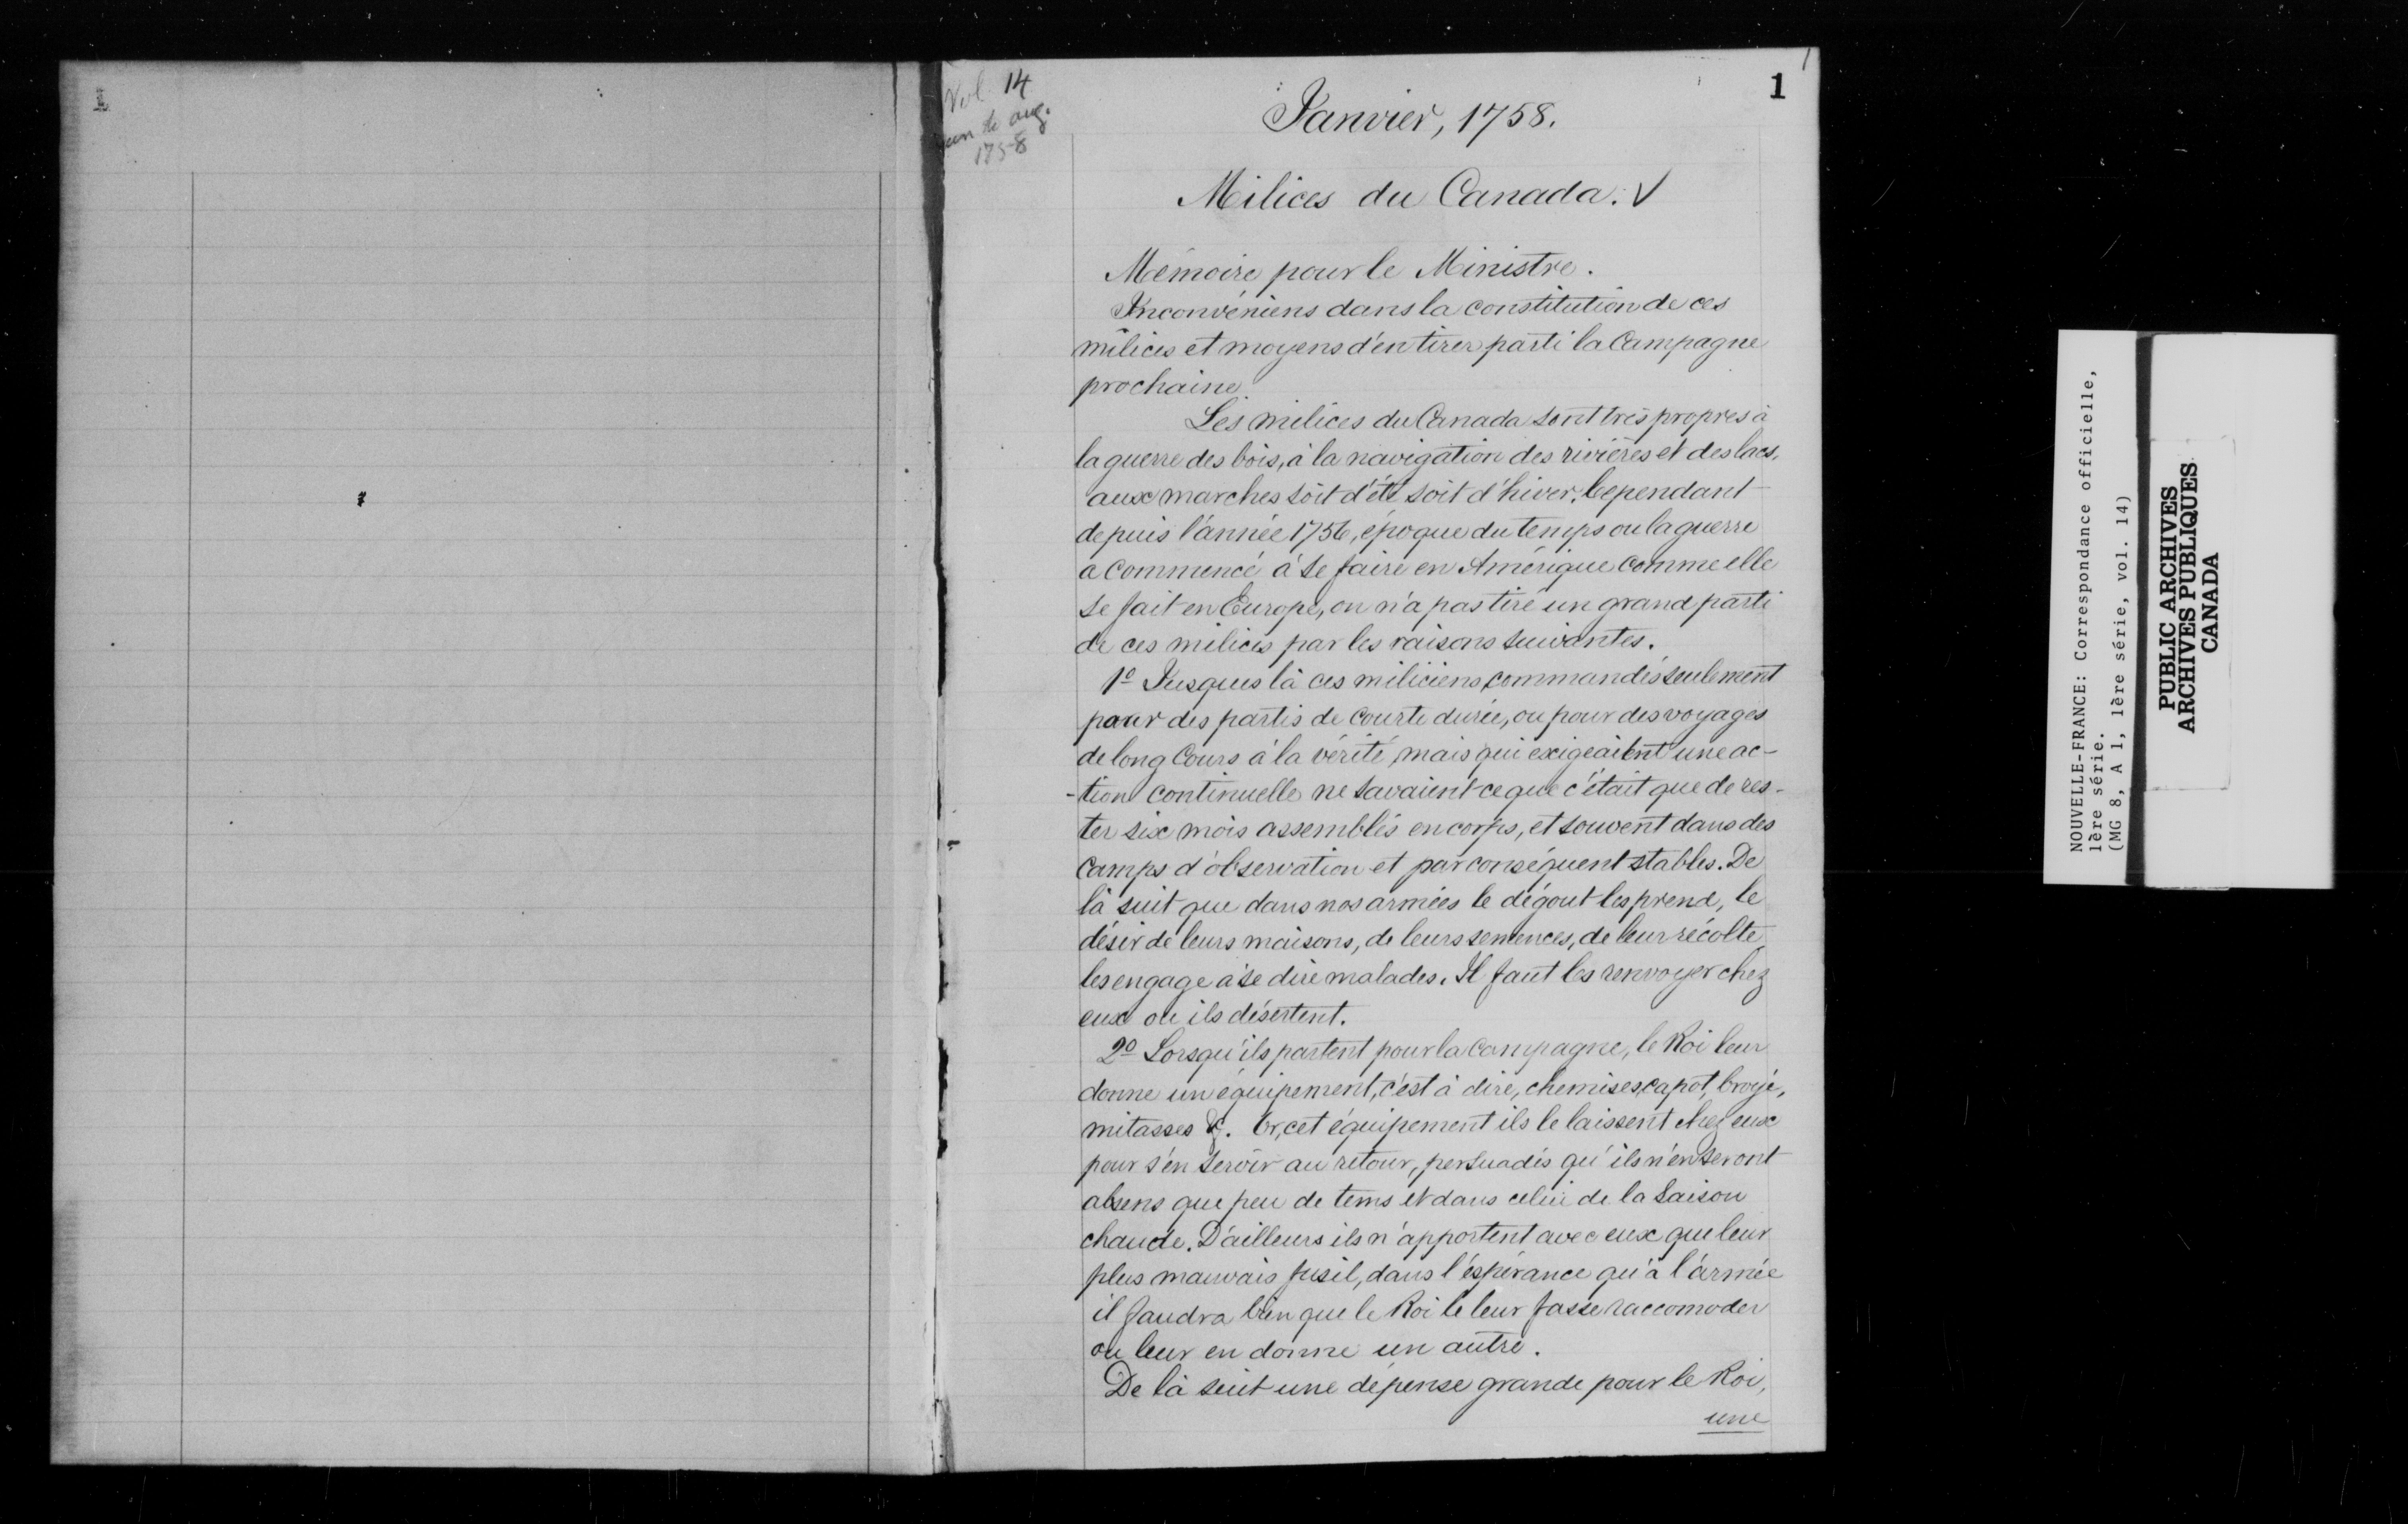 1
Vol 14
Jan to aug.
1758
1
Janvier, 1758.
Milices du Canada. V
Mémoire pour le Ministre.
Inconvéniens dans la constitution de ces
milices et moyens d'en tirer parti la Campagne
prochaine.
Les milices du Canada sont très propres à
la guerre des bois, à la navigation des rivières et des lacs,
aux marches soit d'été soit d'hiver. Cependant
depuis l'année 1756, époque du temps ou la guerre
a commencé à se faire en Amérique comme elle
se fait en Europe, on n'a pas tiré un grand parti
de ces milices par les raisons suivantes.
1º Jusques là ces miliciens, commandés seulement
pour des partis de courte durée, ou pour des voyages
de long cours à la vérité, mais qui exigeaient une ac-
-tion continuelle ne savaient ce que c'était que de res-
ter six mois assemblés en corps, et souvent dans des
camps d'observation et par conséquent stables. De
là suit que dans nos armées le dégout les prend, le
désir de leurs maisons, de leurs semences, de leur récolte
les engage à se dire malades. Il faut les renvoyer chez
eux ou ils désertent.
2º Lorsqu'ils partent pour la campagne, le Roi leur
donne un équipement, c'est à dire, chemises, capot, broyé,
mitasses &. Or, cet équipement ils le laissent chez eux
pour s'en servir au retour, persuadés qu'ils n'en seront
absens que peu de tems et dans celui de la saison
chaude. D'ailleurs ils n'apportent avec eux que leur
plus mauvais fusil, dans l'espérance qu'à l'armée
il faudra bien que le Roi le leur fasse raccomoder
ou leur en donne un autre.
De là suit une dépense grande pour le Roi,
une
NOUVELLE-FRANCE: Correspondance officielle,
1ère série.
(MG 8, A 1, 1ère série, vol. 14)
PUBLIC ARCHIVES
ARCHIVES PUBLIQUES
CANADA